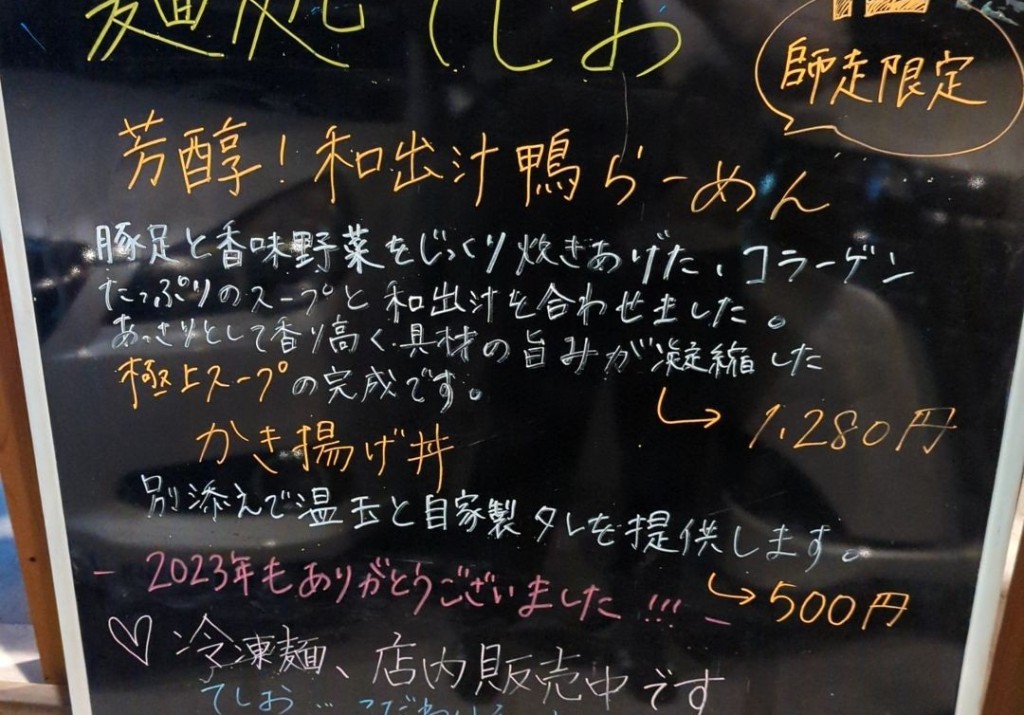 麺処 てしお
師走限定
芳醇！和出汁鴨らーめん
豚足と香味野菜をじっくり炊きあげた、コラーゲン
たっぷりのスープと和出汁を合わせました。
あっさりとして香り高く具材の旨みが凝縮した
極上スープの完成です。
1,280円
かき揚げ丼
別添えで温玉と自家製タレを提供します。
500円
- 2023年もありがとうございました!!! -
♡冷凍麺、店内販売中です
てしお